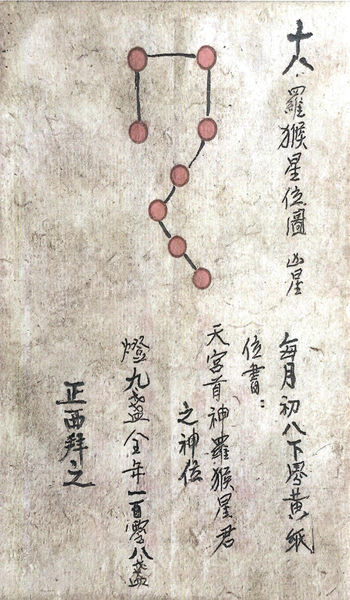 十八 羅猴星位圖 凶星
每月初八下學黃紙
位書：
天宮首神羅猴星君
之神位
燈九盞全年一百零八盞
正西拜之